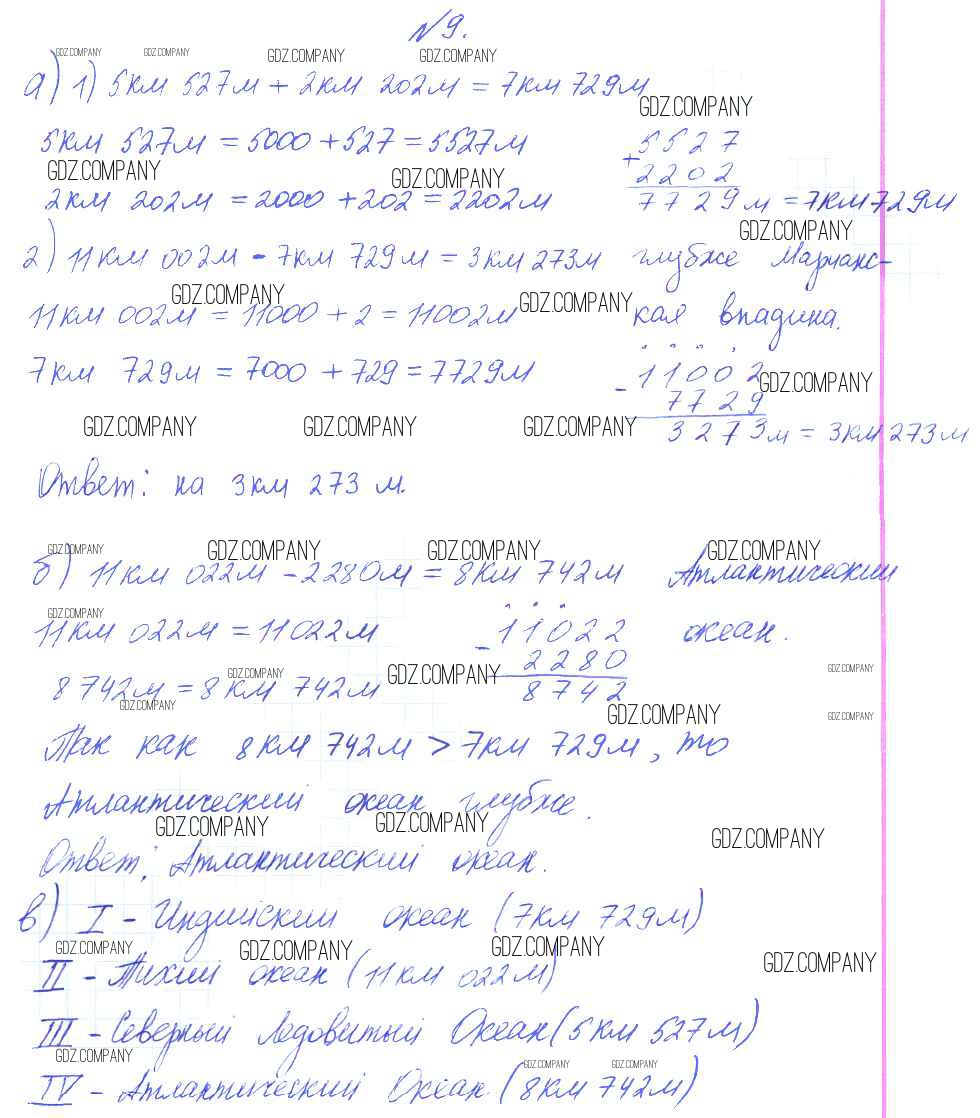 №9.
GDZ.COMPANY GDZ.COMPANY GDZ.COMPANY GDZ.COMPANY
а) 1) 5км 527м + 2км 202м = 7км 729м
GDZ.COMPANY
5км 527м = 5000 + 527 = 5527м
5527
GDZ.COMPANY GDZ.COMPANY
+ 2202
2км 202м = 2000 + 202 = 2202м
7729м = 7км 729м
GDZ.COMPANY
2) 11км 002м - 7км 729м = 3км 273м глубже Марианс-
GDZ.COMPANY GDZ.COMPANY
11км 002м = 11000 + 2 = 11002м кая впадина.
7км 729м = 7000 + 729 = 7729м
- 11002
GDZ.COMPANY
7729
GDZ.COMPANY GDZ.COMPANY GDZ.COMPANY
3273м = 3км 273м
Ответ: на 3км 273 м.
GDZ.COMPANY GDZ.COMPANY GDZ.COMPANY GDZ.COMPANY
б) 11км 022м - 2280м = 8км 742м Атлантический
GDZ.COMPANY
11км 022м = 11022м - 11022 океан.
2280
GDZ.COMPANY GDZ.COMPANY GDZ.COMPANY
8742м = 8км 742м 8742
GDZ.COMPANY GDZ.COMPANY GDZ.COMPANY
Так как 8км 742м > 7км 729м, то
Атлантический океан глубже.
GDZ.COMPANY GDZ.COMPANY GDZ.COMPANY
Ответ: Атлантический океан.
в) I - Индийский океан (7км 729м)
GDZ.COMPANY GDZ.COMPANY GDZ.COMPANY GDZ.COMPANY
II - Тихий океан (11км 022м)
III - Северный Ледовитый Океан (5км 527м)
GDZ.COMPANY GDZ.COMPANY GDZ.COMPANY
IV - Атлантический Океан (8км 742м)